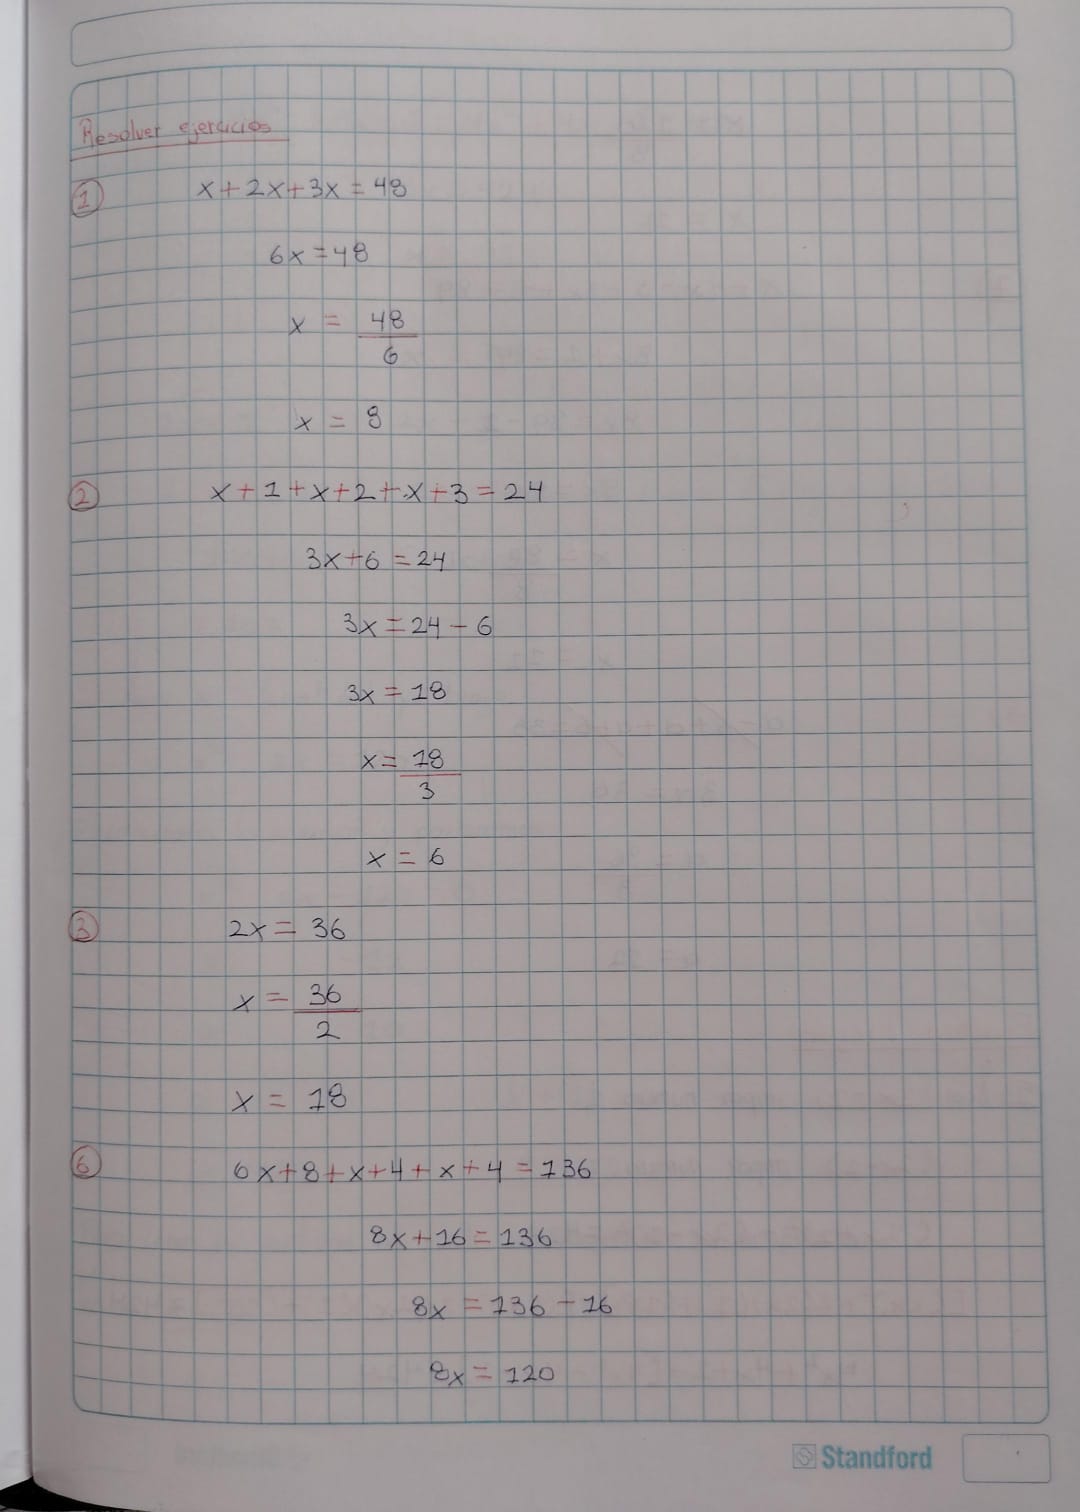 Resolver ejercicios
1 x+2x+3x=48
6x=48
x = 48
6
x = 8
2 x+1+x+2+x+3=24
3x+6=24
3x=24-6
3x=18
x=18
3
x=6
3 2x=36
x=36
2
x=18
6 6x+8+x+4+x+4=136
8x+16=136
8x=136-16
8x=120
Standford